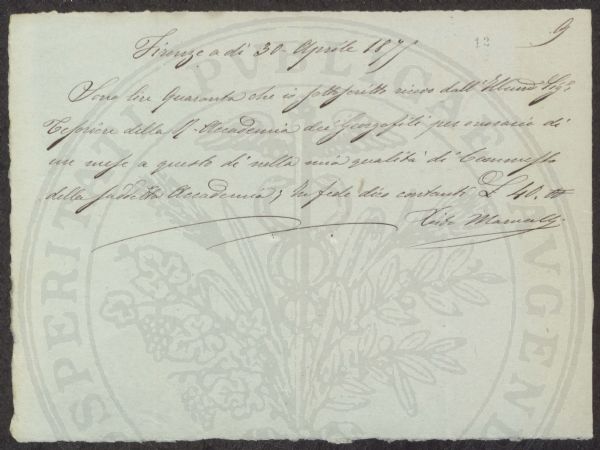 9
12
Firenze a dì 30. Aprile 187
Sono lire Quaranta che io sottoscritto ricevo dall' Sigr.
Tesoriere della R. Accademia dei Georgofili per onorario di
un mese a questo dì nella mia qualità di Commesso
della suddetta Accademia; In fede dico contanti £ 40.
PROSPERITATI PUBLICAE AUGENDAE